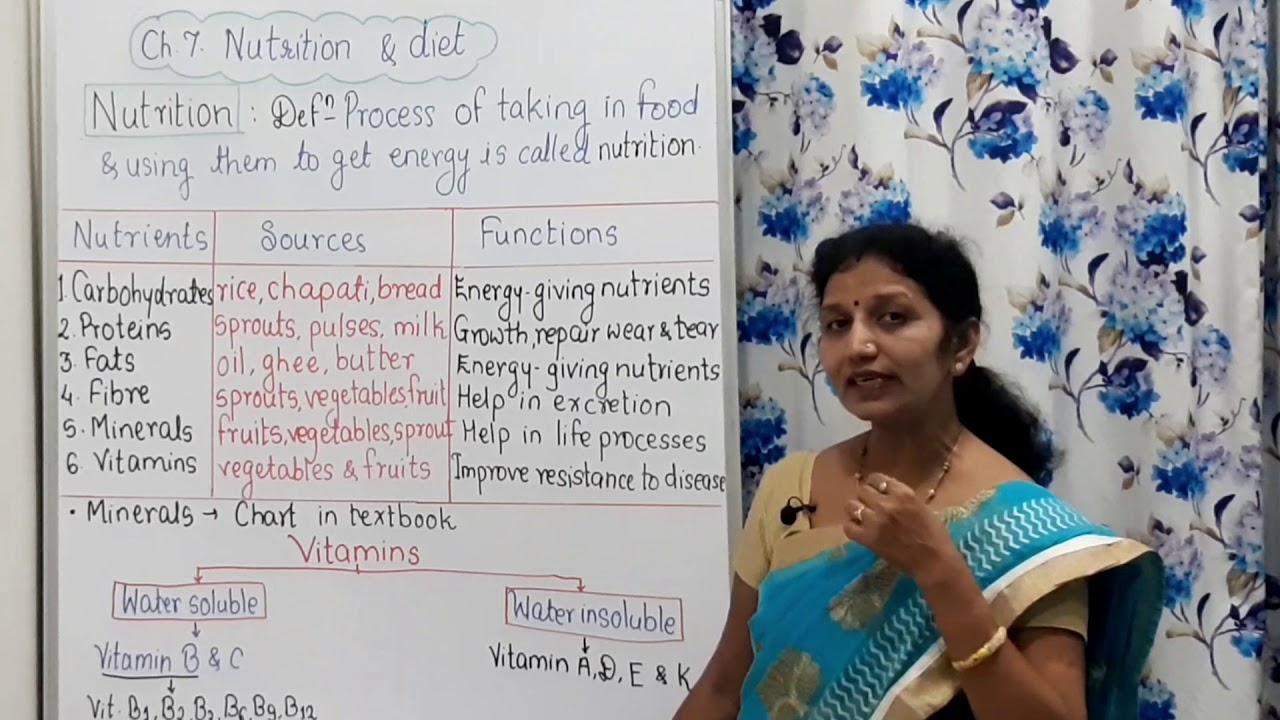 Ch.7. Nutrition & diet
Nutrition : Defⁿ- Process of taking in food
& using them to get energy is called nutrition.
Nutrients Sources Functions
1. Carbohydrates rice, chapati, bread Energy-giving nutrients
2. Proteins sprouts, pulses, milk Growth, repair wear & tear
3. Fats oil, ghee, butter Energy-giving nutrients
4. Fibre sprouts, vegetables, fruit Help in excretion
5. Minerals fruits, vegetables, sprout Help in life processes
6. Vitamins vegetables & fruits Improve resistance to disease
• Minerals → Chart in textbook
Vitamins
Water soluble Water insoluble
Vitamin B & C Vitamin A, D, E & K
Vit. B1, B2, B3, B6, B9, B12